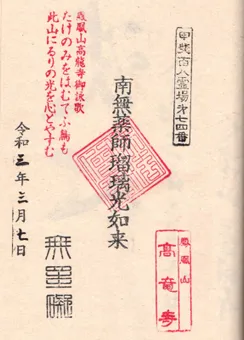 甲斐百八霊場第七四番
南無薬師瑠璃光如来
鳳凰山
高龍寺
鳳凰山高龍寺御詠歌
たけのみをはむてふ鵬も
此山にるりの光を心とやすむ
令和三年三月七日